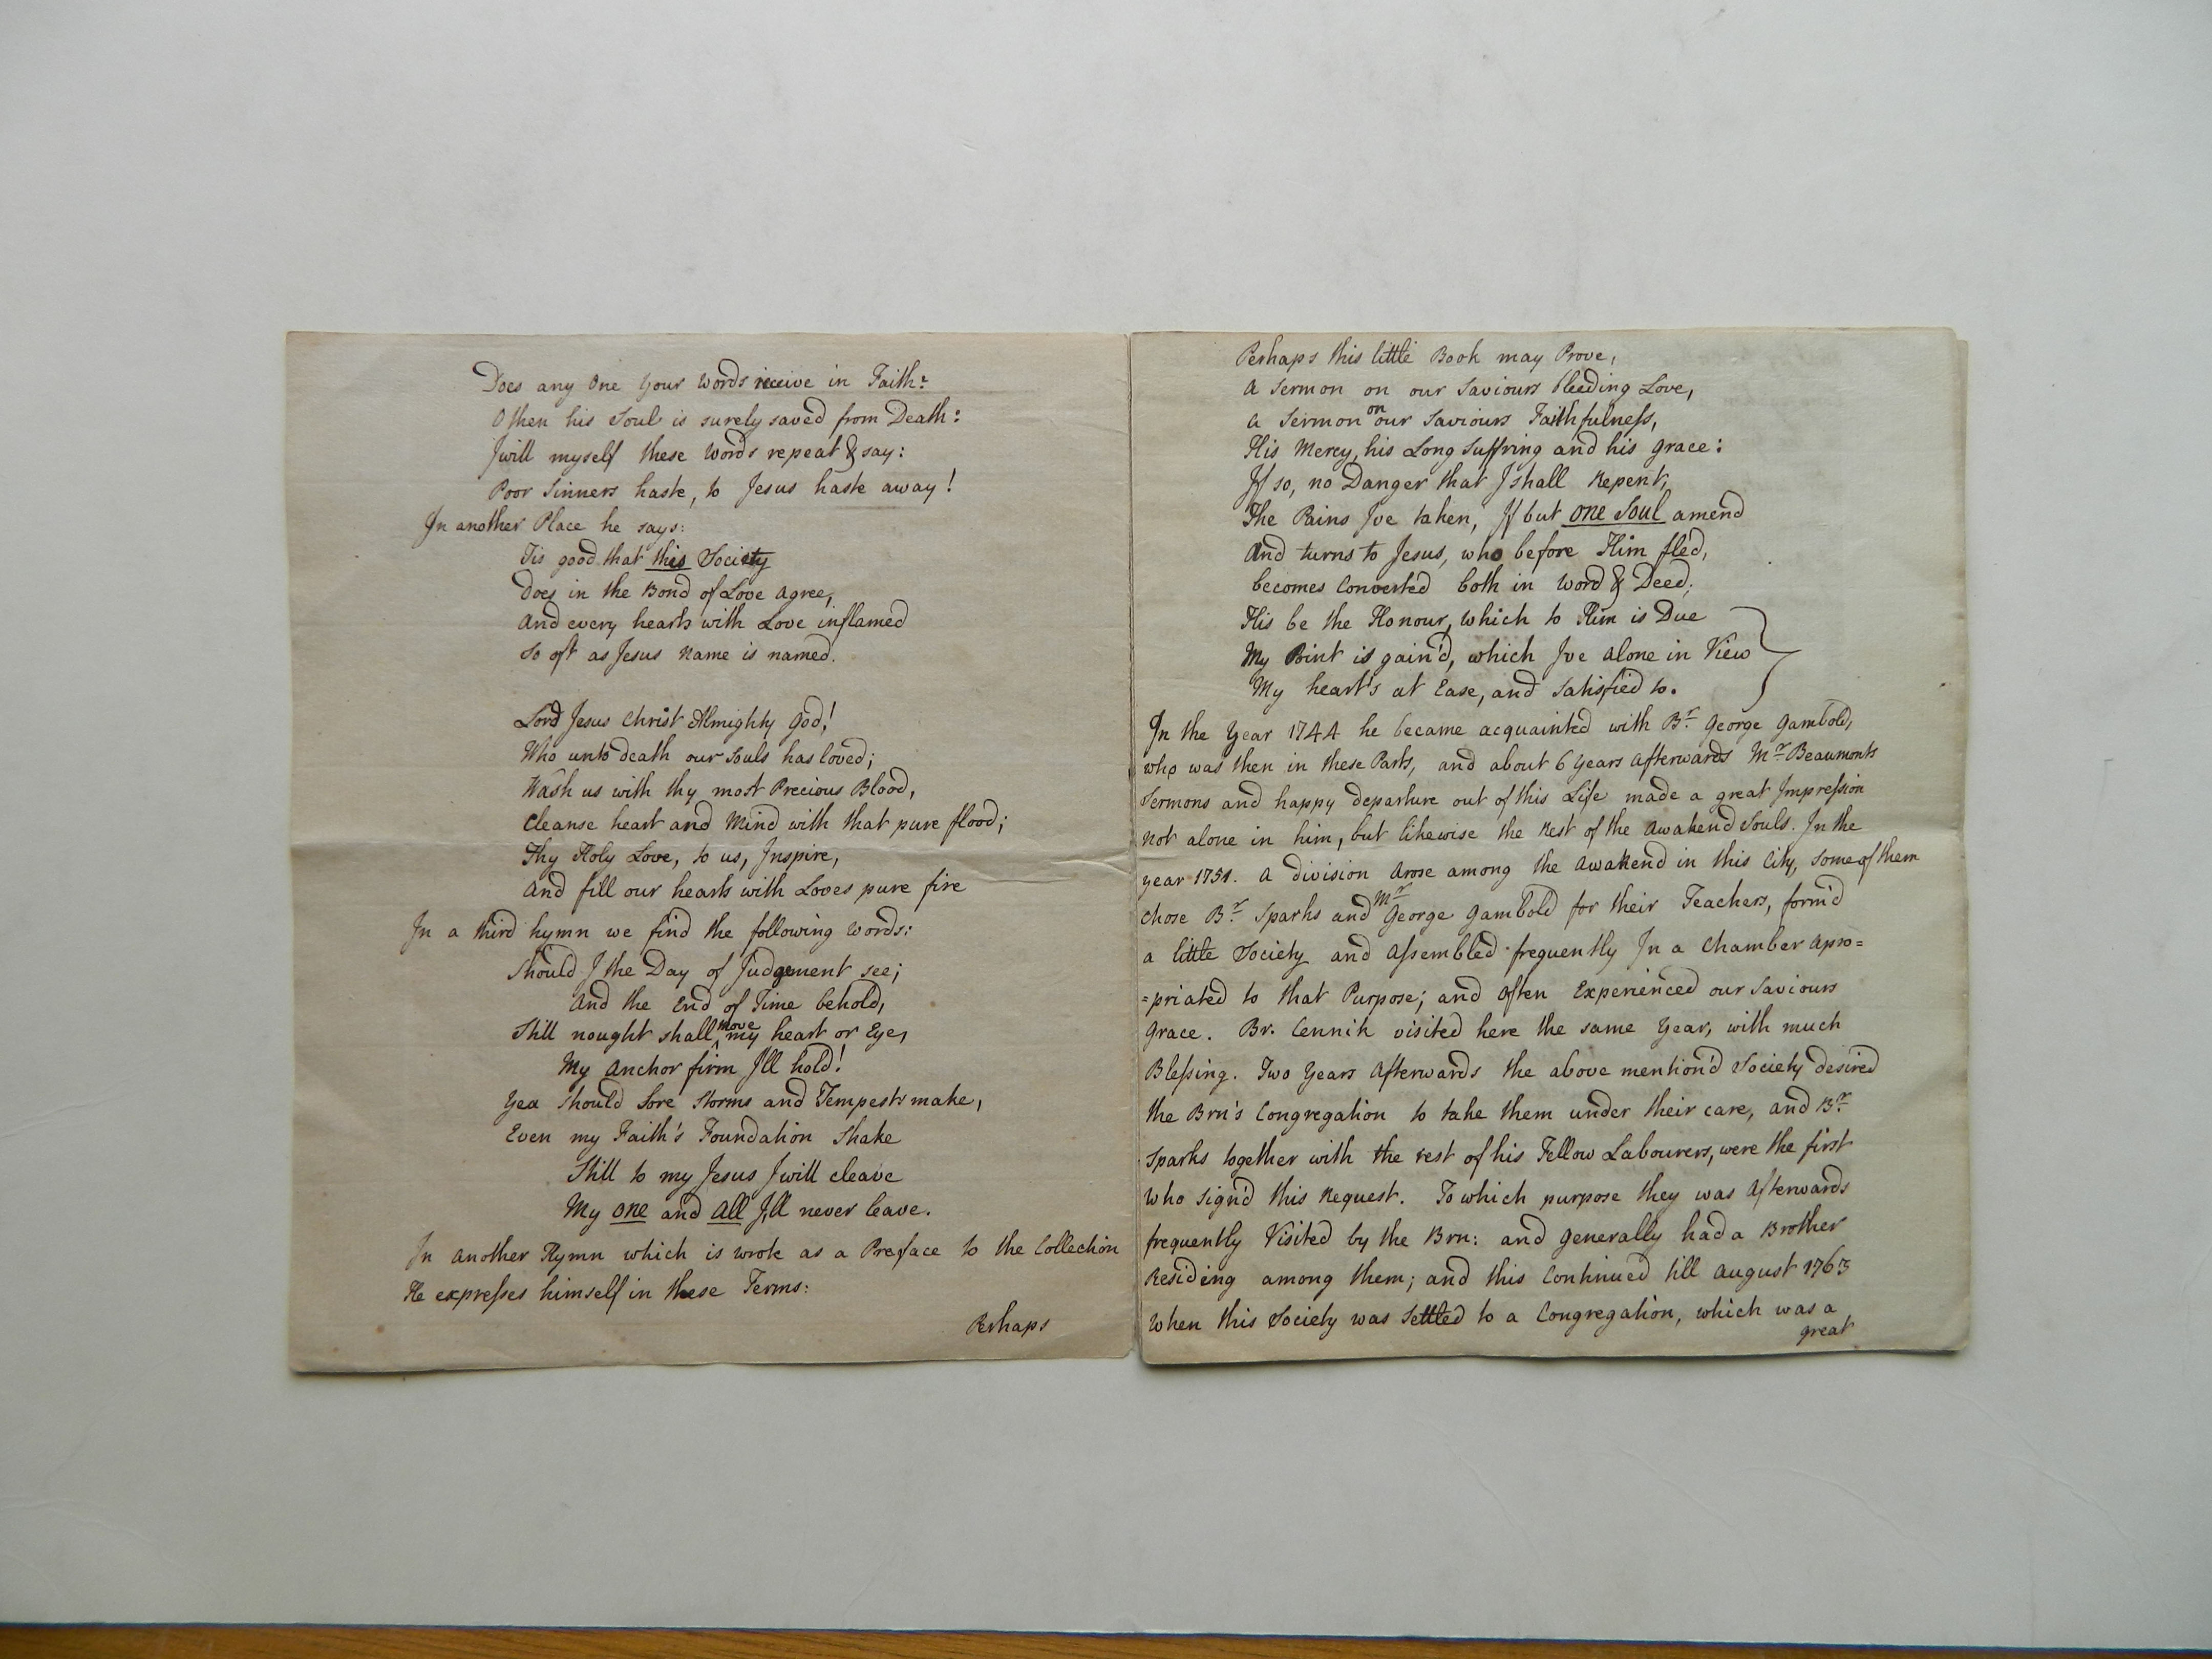 Does any One Your Words receive in Faith:
O then his Soul is surely saved from Death:
I will myself these Words repeat & say:
Poor Sinners haste, to Jesus haste away!
In another Place he says:
Tis good that this Society
Does in the Bond of Love Agree,
And every hearts with Love inflamed
So oft as Jesus Name is named.
Lord Jesus Christ Almighty God!
Who unto death our Souls has loved;
Wash us with thy most Precious Blood,
Cleanse heart and Mind with that pure flood;
Thy Holy Love, to us, Inspire,
And fill our hearts with Loves pure fire
In a third hymn we find the following Words:
Should I the Day of Judgement see;
And the End of Time behold,
Still nought shall move my heart or Eye,
My Anchor firm I'll hold!
Yea Should Sore Storms and Tempests make,
Even my Faith's Foundation Shake
Still to my Jesus I will cleave
My one and All I'll never leave.
In another Hymn which is wrote as a Preface to the Collection
He expresses himself in these Terms:
Perhaps
Perhaps this little Book may Prove,
A Sermon on our Saviours bleeding Love,
A Sermon on our Saviours Faithfulness,
His Mercy, his Long Suffring and his Grace:
If so, no Danger that I shall Repent,
The Pains I've taken, If but one Soul amend
And turns to Jesus, who before Him fled,
becomes Converted both in Word & Deed;
His be the Honour, which to Him is Due
My Point is gain'd, which I've Alone in View
My heart's at Ease, and Satisfied to.
In the Year 1744 he became acquainted with Br. George Gambold,
who was then in these Parts, and about 6 Years Afterwards Mr. Beaumonts
Sermons and happy departure out of this Life made a great Impression
not alone in him, but likewise the Rest of the Awakend Souls. In the
year 1751. A division Arose among the Awakend in this City, Some of them
Chose Br. Sparks and Mr. George Gambold for their Teachers, form'd
a little Society and Assembled frequently In a Chamber Apro=
=priated to that Purpose; and Often Experienced our Saviours
Grace. Br. Cennik visited here the same Year, with much
Blessing. Two Years Afterwards the above mention'd Society desired
the Brn's Congregation to take them under their care, and Br.
Sparks together with the rest of his Fellow Labourers, were the first
who sign'd this Request. To which purpose they was Afterwards
frequently Visited by the Brn: and generally had a Brother
Residing among them; and this Continued till August 1763
When this Society was Settled to a Congregation, which was a
great